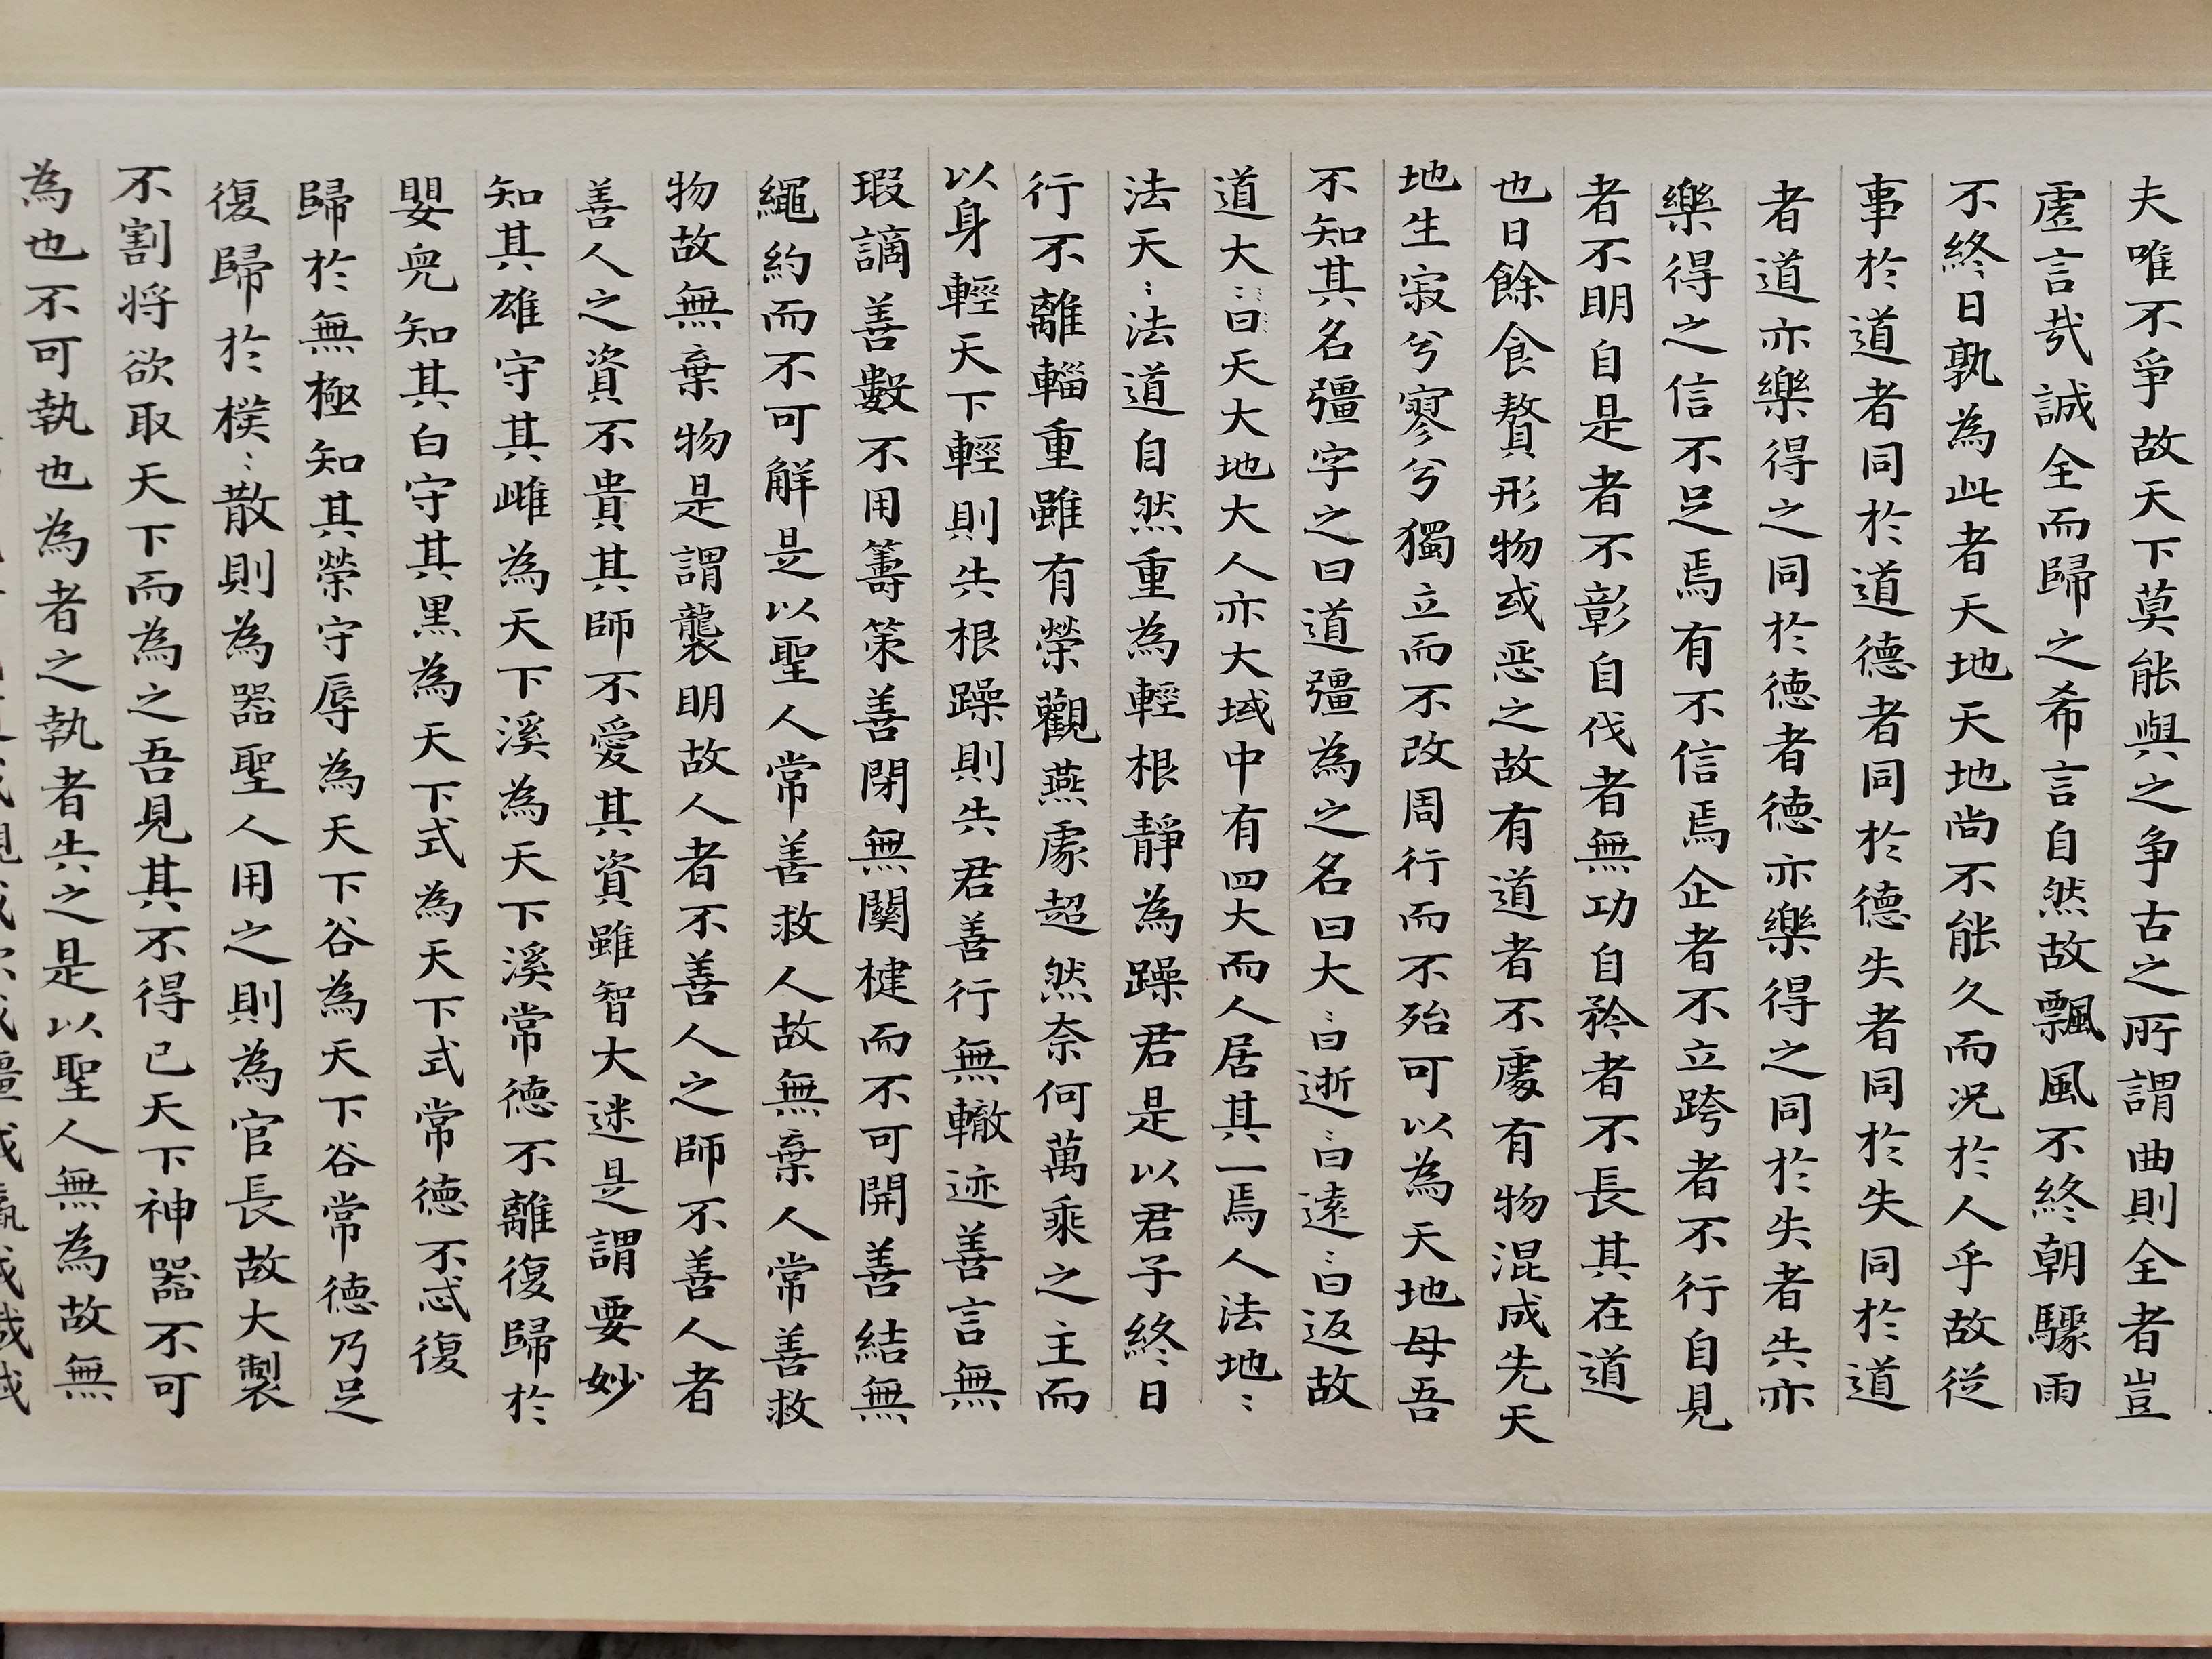 夫唯不爭故天下莫能與之争古之所謂曲則全者豈
虛言哉誠全而歸之希言自然故飄風不終朝驟雨
不終日孰為此者天地天地尚不能久而況於人乎故從
事於道者同於道德者同於德失者同於失同於道
者道亦樂得之同於德者德亦樂得之同於失者失亦
樂得之信不足焉有不信焉企者不立跨者不行自見
者不明自是者不彰自伐者無功自矜者不長其在道
也曰餘食贅形物或惡之故有道者不處有物混成先天
地生寂兮寥兮獨立而不改周行而不殆可以為天地母吾
不知其名彊字之曰道彊為之名曰大:曰逝:曰遠:曰返故
道大::曰:天大地大人亦大域中有四大而人居其一焉人法地:
法天:法道自然重為輕根靜為躁君是以君子終日
行不離輜重雖有榮觀燕處超然奈何萬乘之主而
以身輕天下輕則失根躁則失君善行無轍迹善言無
瑕謫善數不用籌策善閉無關楗而不可開善結無
繩約而不可解是以聖人常善救人故無棄人常善救
物故無棄物是謂襲明故人者不善人之師不善人者
善人之資不貴其師不愛其資雖智大迷是謂要妙
知其雄守其雌為天下溪為天下溪常德不離復歸於
嬰兒知其白守其黑為天下式為天下式常德不忒復
歸於無極知其榮守辱為天下谷為天下谷常德乃足
復歸於樸:散則為器聖人用之則為官長故大製
不割将欲取天下而為之吾見其不得已天下神器不可
為也不可執也為者之執者失之是以聖人無為故無